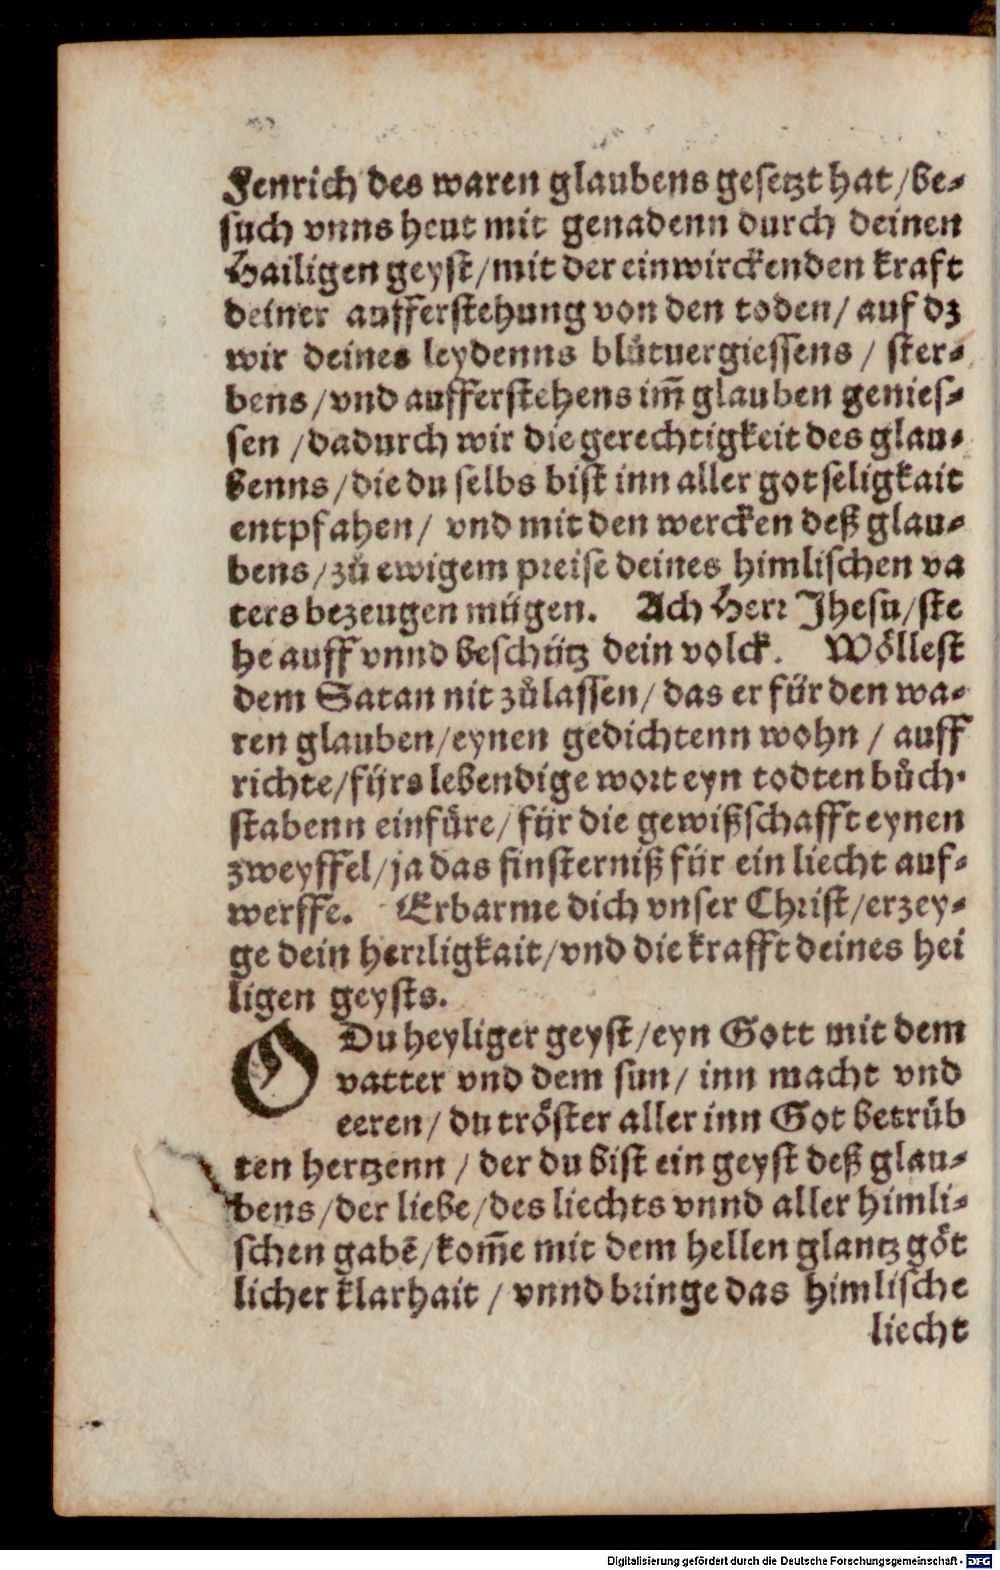 Fenrich des waren glaubens gesetzt hat/be-
such vnns heut mit genadenn durch deinen
Hailigen geyst/mit der einwirckenden kraft
deiner aufferstehung von den toden/ auf dz
wir deines leydenns blůtuergiessens / ster-
bens/vnd aufferstehens im̃ glauben genies-
sen /dadurch wir die gerechtigkeit des glau-
benns/die du selbs bist inn aller gotseligkait
entpfahen/ vnd mit den wercken deß glau-
bens/zů ewigem preise deines himlischen va
ters bezeugen mügen. Ach Herr Jhesu/ste
he auff vnnd beschütz dein volck. Wöllest
dem Satan nit zůlassen/das er für den wa-
ren glauben/eynen gedichtenn wohn / auff
richte/fürs lebendige wort eyn todten bůch-
stabenn einfüre/für die gewißschafft eynen
zweyffel/ja das finsterniß für ein liecht auf-
werffe. Erbarme dich vnser Christ/erzey-
ge dein herrligkait/vnd die krafft deines hei
ligen geysts.
O Du heyliger geyst/eyn Gott mit dem
vatter vnd dem sun/ inn macht vnd
eeren/du tröster aller inn Got betrüb
ten hertzenn / der du bist ein geyst deß glau-
bens/der liebe/des liechts vnnd aller himli-
schen gabē/kom̃e mit dem hellen glantz göt
licher klarhait / vnnd bringe das himlische
liecht
Digitalisierung gefördert durch die Deutsche Forschungsgemeinschaft - DFG